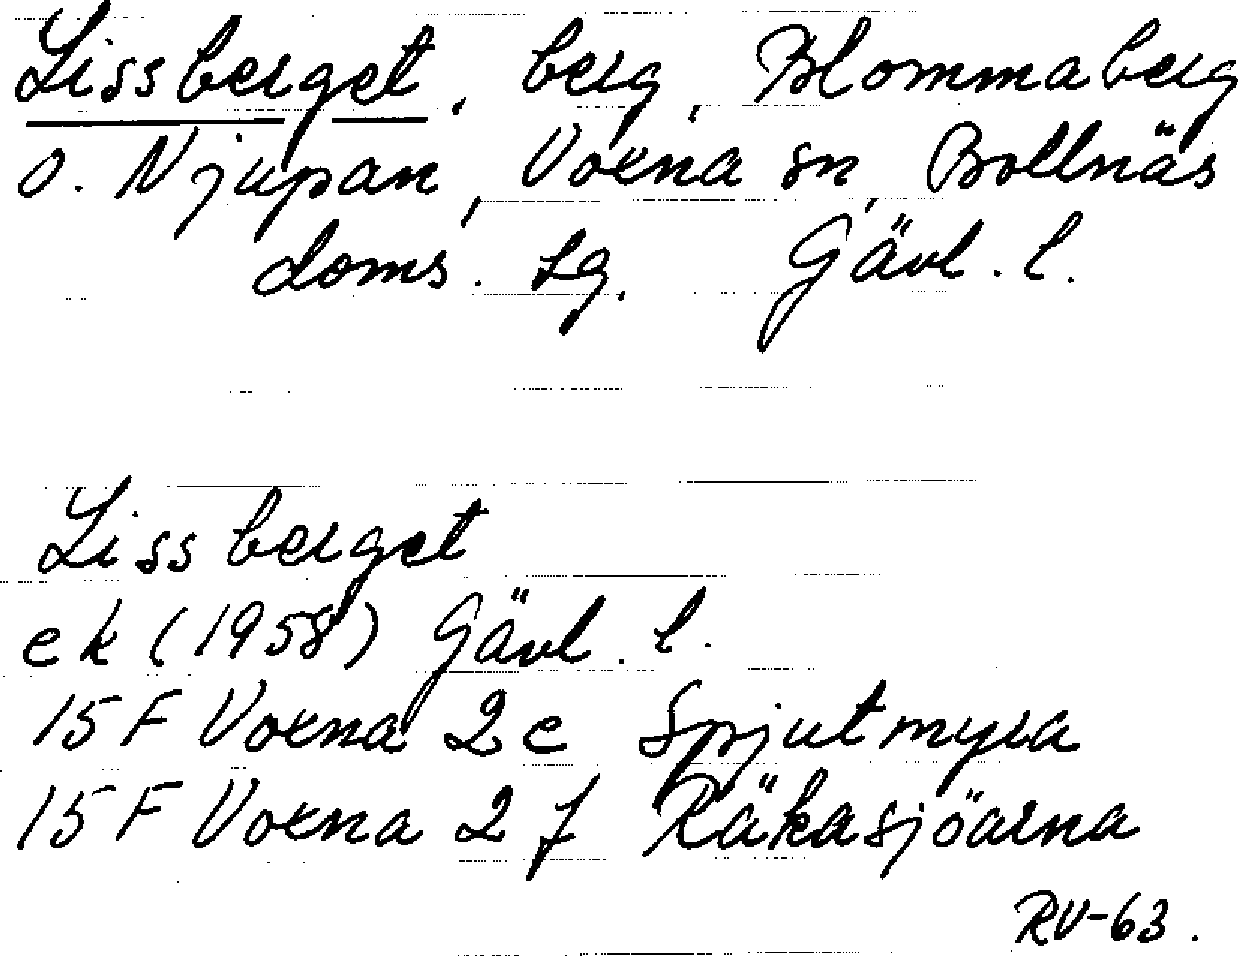 Lissberget, berg, Blommaberg
o. Njupan, Voxna sn, Bollnäs
doms. sg. Gävl. l.
Lissberget
ek (1958) Gävl. l.
15 F Voxna 2 e Spjutmyra
15 F Voxna 2 f Räkasjöarna
RV-63.